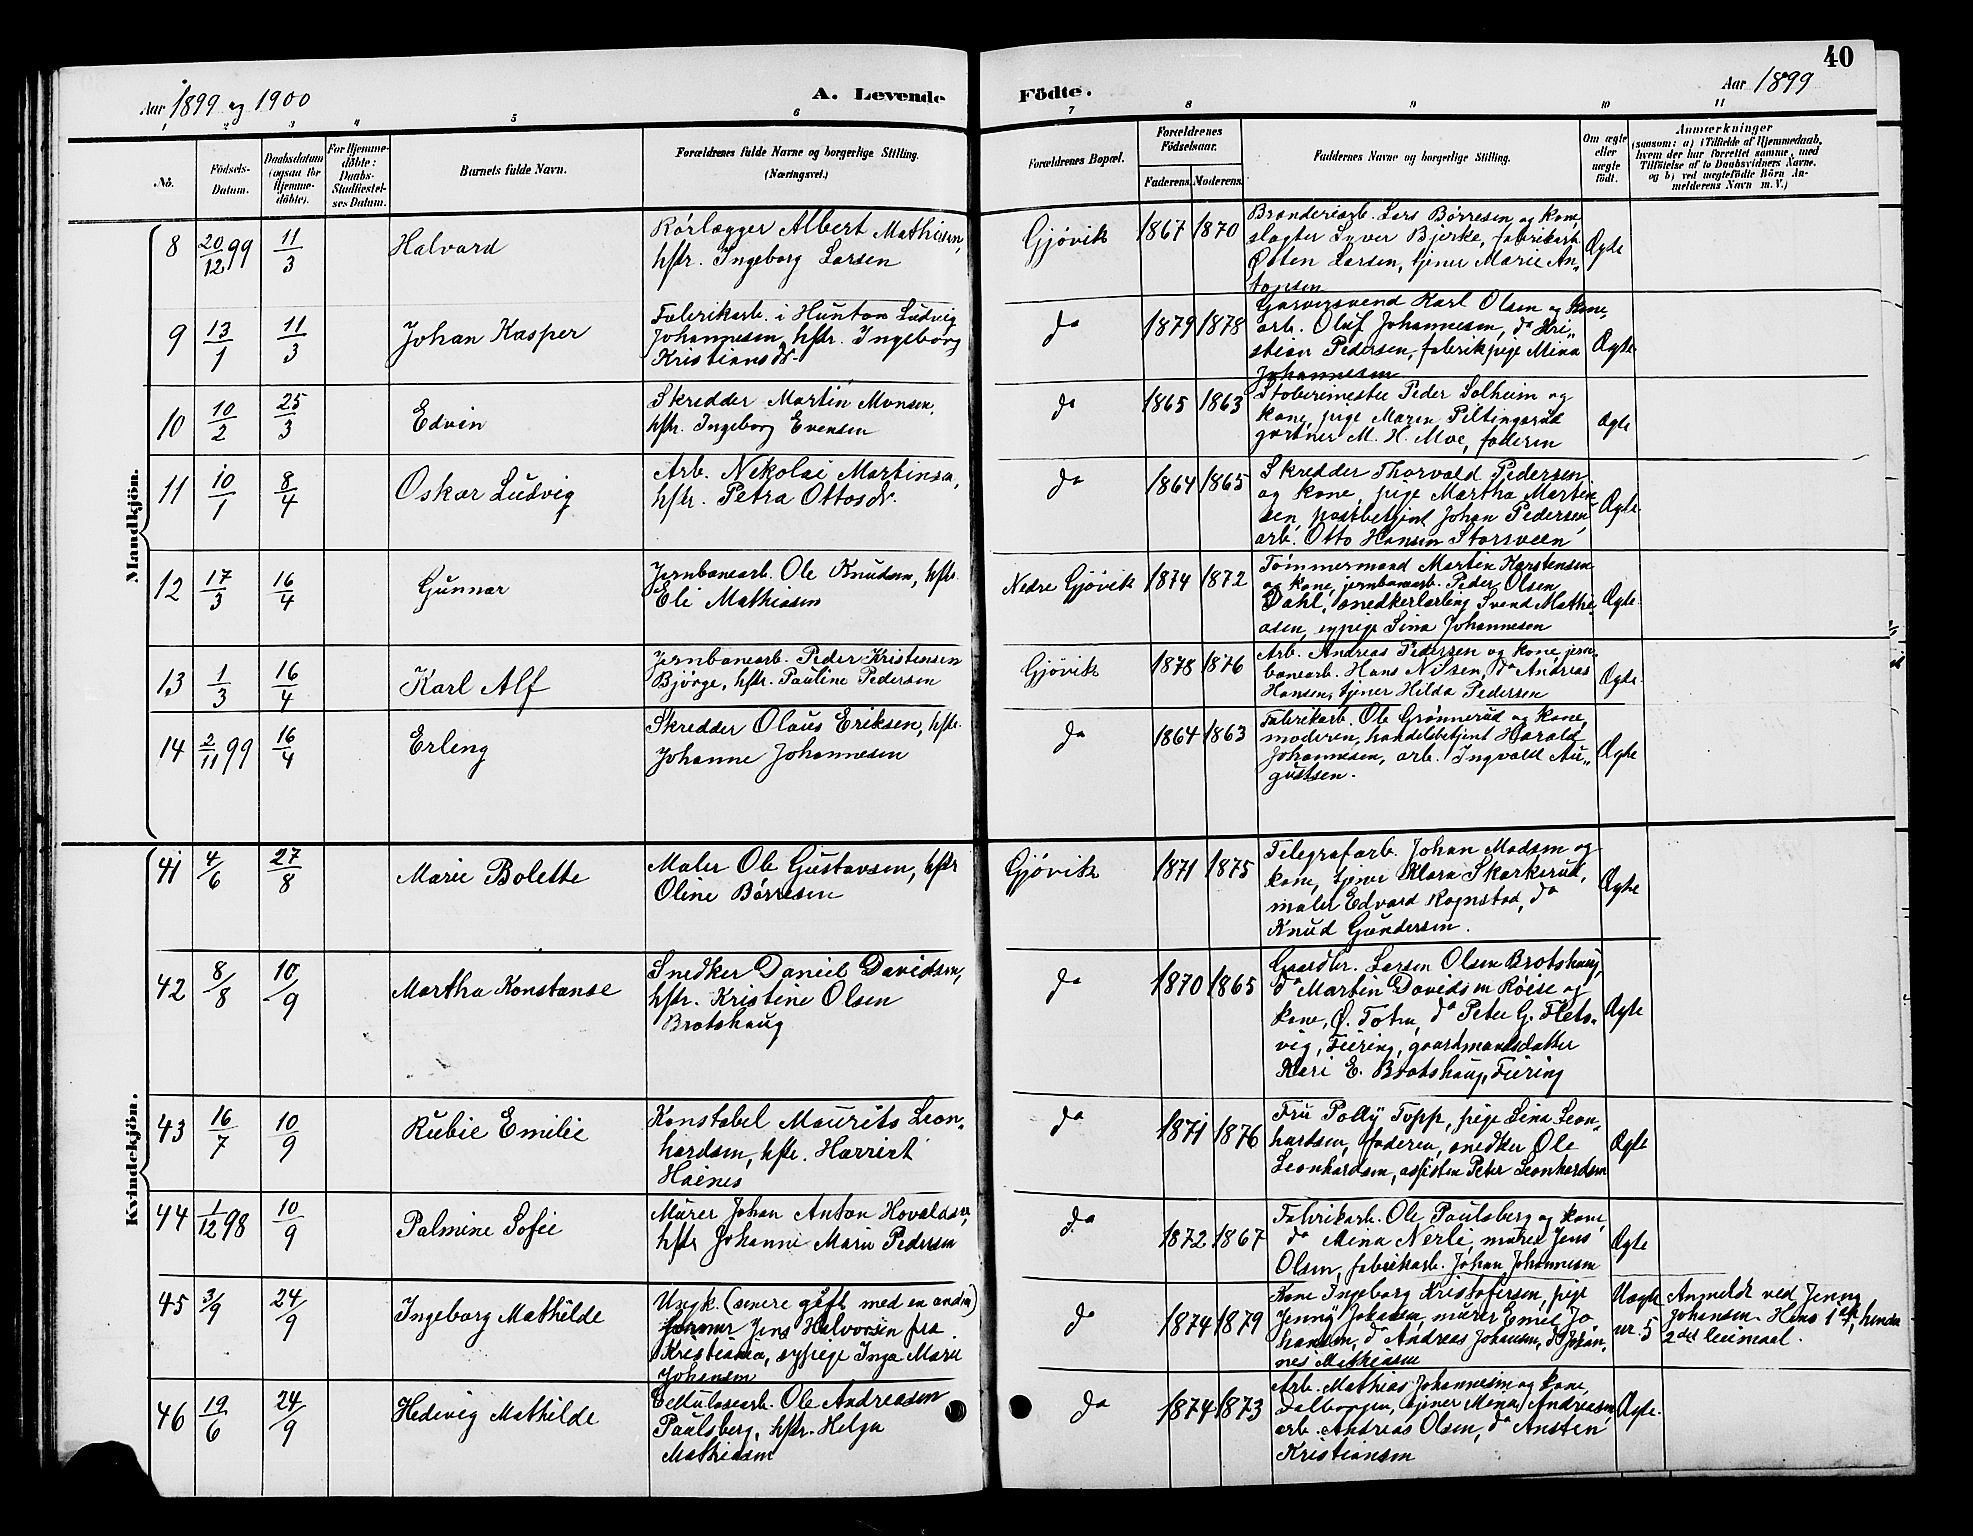 40
Aar 1899 og 1900
A. Levende
Födte.
Aar 1899
1 2 3 4 5 6 7 8 9 10 11
No.
Födsels-
Datum.
Daabsdatum
(ogsaa for
Hjemme-
döbte).
For Hjemme-
döbte:
Daabs-
Stadfæstel-
ses Datum.
Barnets fulde Navn.
Forældrenes fulde Navne og borgerlige Stilling.
(Næringsvei.)
Forældrenes Bopæl.
Forældrenes
Födselsaar.
Faderens. Moderens.
Faddernes Navne og borgerlige Stilling.
Om ægte
eller
uægte
födt.
Anmærkninger
(saasom: a) i Tilfælde af Hjemmedaab,
hvem der har forrettet samme, med
Tilföielse af to Daabsvidners Navne,
og b) ved uægtefödte Börn An-
melderens Navn m. V.)
Mandkjön.
8
20/12 99
11/3
Halvard
Rörlægger Albert Mathisen,
hstr. Ingeborg Larsen
Gjövik
1867 1870
Brænderiarb. Lars Börresen og kone,
slagter Syver Bjerke, fabrikarb.
Östen Larsen, tjener Marie An-
tonsen
Ægte
9
13/1
11/3
Johan Kasper
Fabrikarb. i Hunton Ludvig
Johannesen, hstr. Ingeborg
Kristiansdr.
do
1879 1878
Garversvend Karl Olsen og kone,
arb. Oluf Johannesen, do Kri-
stian Pedersen, fabrikpige Mina
Johannesen
Ægte
10
10/2
25/3
Edvin
Skredder Martin Monsen,
hstr. Ingeborg Evensen
do
1865 1863
Støberimester Peder Solheim og
kone, pige Maren Piltingsrud
gartner M. H. Moe, faderen
Ægte
11
10/1
8/4
Oskar Ludvig
Arb. Nekolai Martinsen,
hstr. Petra Ottosdr.
do
1864 1865
Skredder Thorvald Pedersen
og kone, pige Martha Martin-
sen, postbetjent Johan Pedersen
arb. Otto Hansen Storsveen
Ægte
12
17/3
16/4
Gunnar
Jernbanearb. Ole Knudsen, hstr.
Eli Mathiasen
Nedre Gjövik
1874 1872
Tömmermand Martin Karstensen
og kone, jernbanearb. Peder Olsen
Dahl, snedkerlærling Svend Mathi-
asen, sypige Lina Johannesen
Ægte
13
1/3
16/4
Karl Alf
Jernbanearb. Peder Kristensen
Bjørge, hstr. Pauline Pedersen
Gjövik
1878 1876
Arb. Andreas Pedersen og kone jern-
banearb. Hans Nilsen, do Andreas
Hansen, tjener Hilda Pedersen
Ægte
14
2/11 99
16/4
Erling
Skredder Olaus Eriksen, hstr.
Johanne Johannesen
do
1864 1863
Fabrikarb. Ole Grönnerud og kone,
moderen, handelsbetjent Harald
Johannesen, arb. Ingvald Au-
gustsen.
Ægte
Kvindekjön.
41
4/6
27/8
Marie Bolette
Maler Ole Gustavsen, hstr
Oline Børresen
Gjövik
1871 1875
Telegrafarb. Johan Madsen og
kone, tjener Klara Skarkerud,
maler Edvard Rognstad, do
Knud Gundersen.
Ægte
42
8/8
10/9
Martha Konstanse
Snedker Daniel Davidsen,
hstr. Kristine Olsen
Brotshaug
do
1870 1865
Gaardbr. Larsen Olsen Brotshaug,
do Martin Davidsen Röise og
kone, Ø. Toten, do Peter G. Flets-
vig, Feiring, gaardmandsdatter
Kari E. Brotshaug, Feiring
Ægte
43
16/7
10/9
Rubie Emilie
Konstabel Maurits Leon-
hardsen, hstr. Harriet
Haines
do
1871 1876
Fru Polly Topp, pige Lina Leon-
hardsen, faderen, snedker Ole
Leonhardsen, assistent Peter Leonhardsen
Ægte
44
1/12 98
10/9
Palmine Sofie
Murer Johan Anton Hovaldsen,
hstr Johanne Marie Pedersen
do
1872 1867
Fabrikarb. Ole Paulsberg og kone,
do Mina Nerli, murer Jens
Olsen, fabrikarb. Johan Johannesen
Ægte
45
3/9
24/9
Ingeborg Mathilde
Ungk. (senere gift med en anden)
Jens Halvorsen fra
Kristiania, sypige Inga Marie
Johansen
do
1874 1879
Kone Ingeborg Kristofersen, pige
Jenny Johansen, murer Emil Jo-
hansen, do Andreas Johansen, do Johan-
nes Mathiasen
Uægte
nr. 5
Anmeldt ved Jenny
Johansen. Hans 1ste, hendes
2det leiermaal.
46
19/6
24/9
Hedevig Mathilde
Cellulosearb. Ole Andreasen
Paulsberg, hstr. Helga
Mathiasen
do
1874 1873
Arb. Mathias Johannesen og kone,
Dalborgen, tjener Mina Andreasen,
arb. Andreas Olsen, do Ansten
Kristiansen
Ægte.